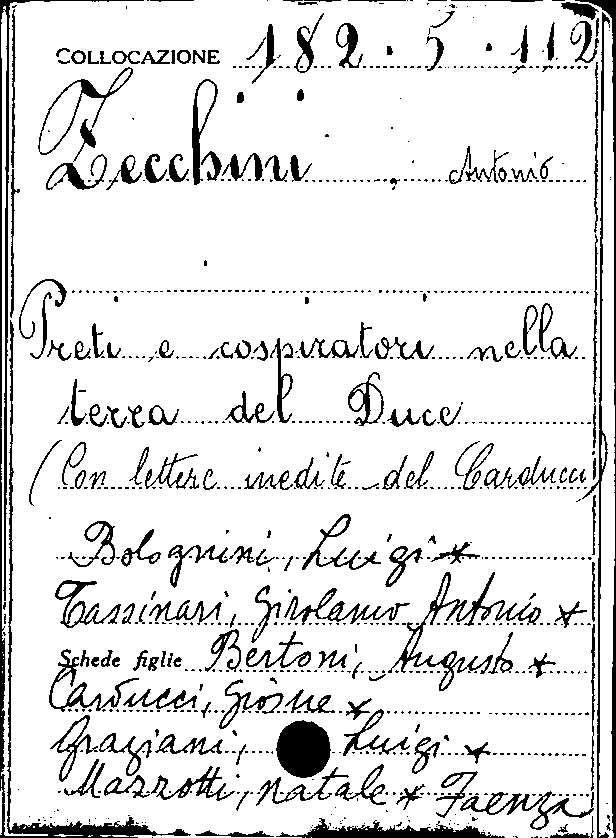 COLLOCAZIONE 182.5.112
Zecchini, Antonio
Preti e cospiratori nella
terra del Duce
(Con lettere inedite del Carducci)
Bolognini, Luigi *
Tassinari, Girolamo Antonio *
Schede figlie Bertoni, Augusto *
Carducci, Giosue *
Graziani, Luigi *
Mazzotti, Natale * Faenza